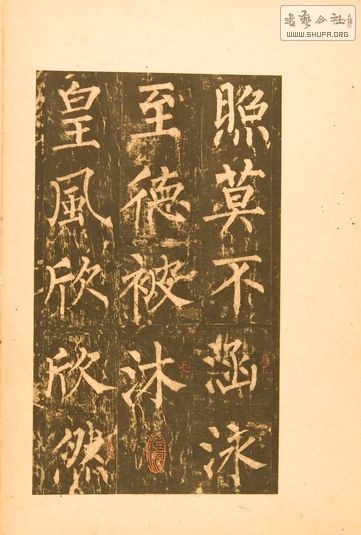 照莫不涵泳
至徳被沐
皇風欣欣然
書藝公社
WWW.SHUFA.ORG